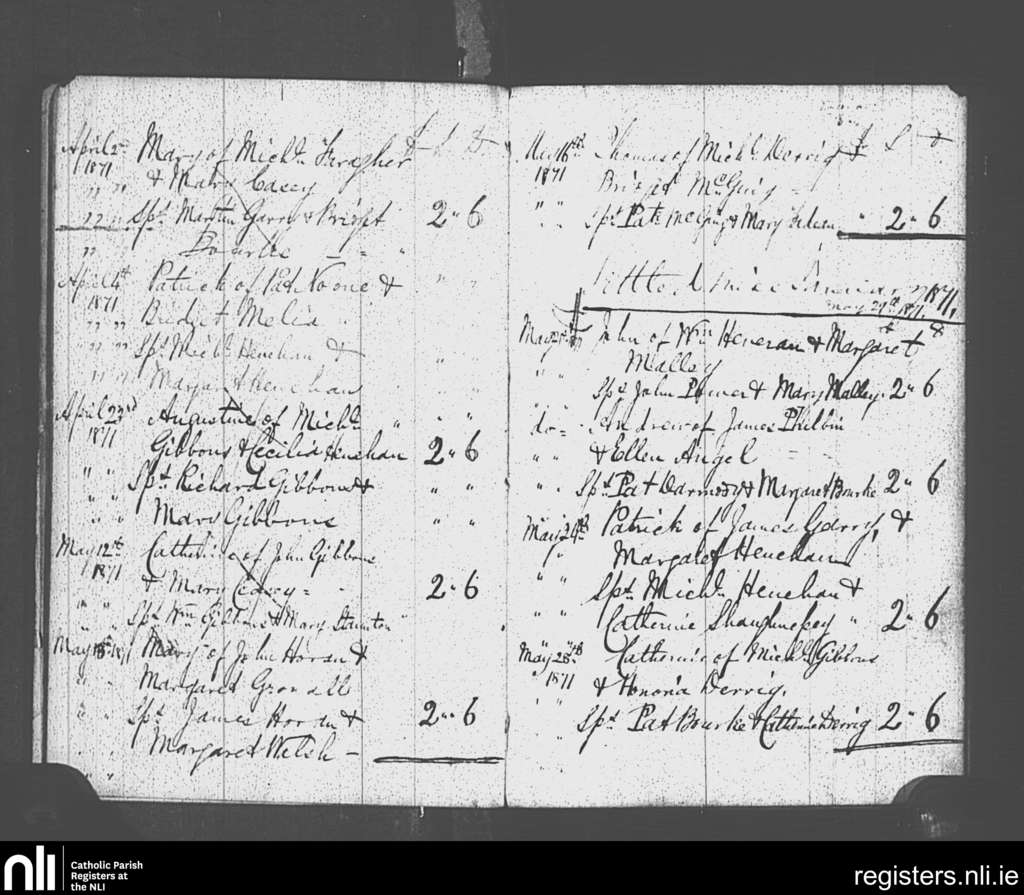 April 2nd Mary of Michl. Faragher £ S D
1871 & Mary Casey
" " Spt. Martin Garry & Bright 2 " 6
" Bourke
April 4th Patrick of Pat Noone &
1871 Bridget Melia
" " Spt. Michl. Henehan &
" " Margaret Henehan
April 23rd Augustine of Michl.
1871 Gibbons & Cecilia Henehan 2 " 6
" " Spt. Richard Gibbons &
" " Mary Gibbons
May 12th Catherine of John Gibbons
1871 & Mary 2 " 6
" " Spt. Wm. Gibbons & Mary Staunton
May 1871 Mary of John Horan &
" " Margaret
" " Spt. James Horan & 2 " 6
Margaret Welsh
May 16th Thomas of Michl. Derrig & £ S D
1871 Bridget McGuig
" " Spt. Pat. & Mary " 2 " 6
January 1871,
May 29th 1871.
May John of Wm. Heneran & Margaret
" " Malley
Spt. John & Mary Malley. 2 " 6
do = Andrew of James Philbin
" " & Ellen Angel
" " Spt. Pat Darmody & Margaret Bourke 2 " 6
May 24th Patrick of James Garry, &
" Margaret Henehan
" " Spt. Michl. Henehan &
" " Catherine Shaughnessy " 2 " 6
May 28th Catherine of Michl. Gibbons
" 1871 & Honoria Derrig.
" " Spt. Pat Bourke & Catherine Derrig 2 " 6
nli Catholic Parish
Registers at
the NLI
registers.nli.ie